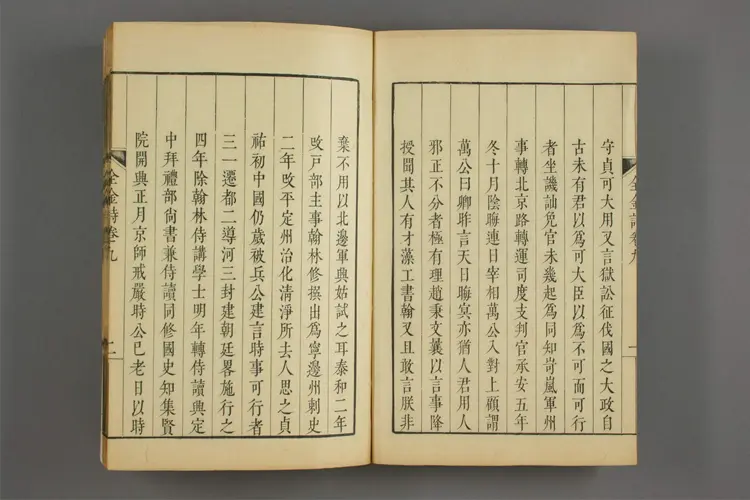 全金詩卷九
一
守貞可大用又言獄訟征伐國之大政自
古未有君以爲可大臣以爲不可而可行
者坐譏訕免官未幾起爲同知岢嵐軍州
事轉北京路轉運司度支判官承安五年
冬十月陰晦連日宰相萬公入對上顧謂
萬公曰卿昨言天日晦冥亦猶人君用人
邪正不分者極有理趙秉文曩以言事降
授聞其人有才藻工書翰又且敢言朕非
棄不用以北邊軍興姑試之耳泰和二年
改戸部主事翰林修撰出爲寧邊州刺史
二年改平定州治化清淨所去人思之貞
祐初中國仍歲被兵公建言時事可行者
三一遷都二導河三封建朝廷畧施行之
四年除翰林侍講學士明年轉侍讀興定
中拜禮部尙書兼侍讀同修國史知集賢
院開興正月京師戒嚴時公已老日以時
全金詩卷九
二